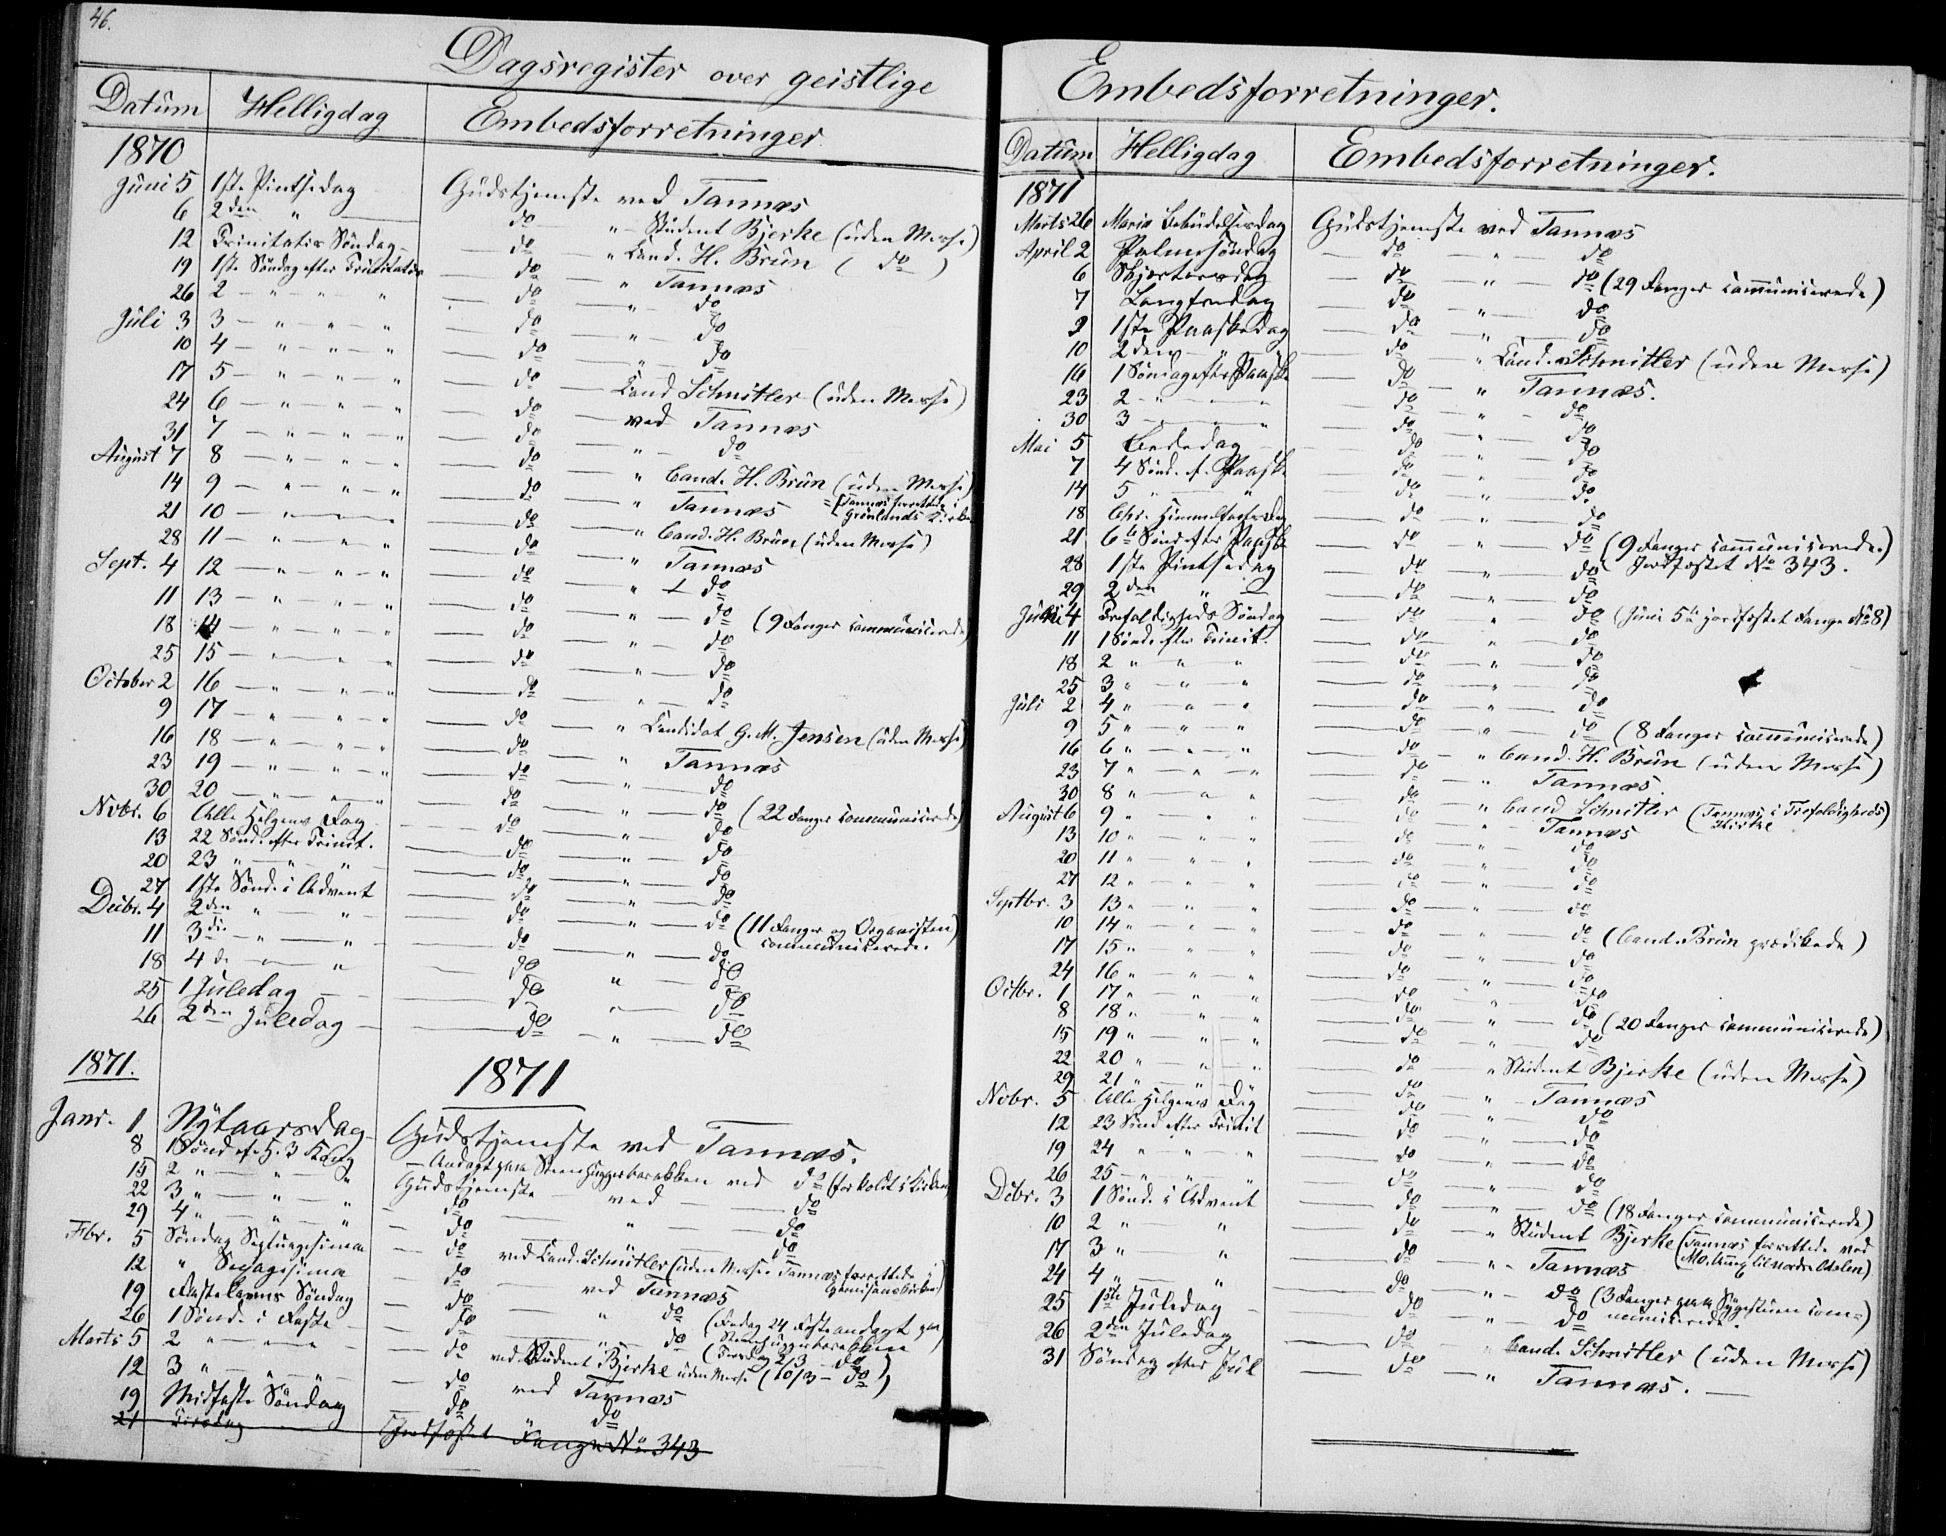 46.
Dagsregister over geistlige
Datum Helligdag Embedsforretninger.
1870
Juni 5 1ste Pintsedag Gudstjeneste ved Tannæs
6 2den " do " Student Bjerke (uden Messe)
12 Trinitatis Søndag do " Cand. H. Brun ( do )
19 1ste Søndag efter Trinitatis do " Tannæs
26 2 — " — " — " do " do
Juli 3 3 — " — " — " do " do
10 4 — " — " — " do " do
17 5 — " — " — " do — Cand Schnitler (uden Messe)
24 6 — " — " — " do — ved Tannæs
31 7 — " — " — " do " do
August 7 8 — " — " — " do " Cand. H. Brun (uden Messe)
14 9 — " — " — " do " Tannæs = (Tannæs forrettede i Grønlands Kirke
21 10 — " — " — " do " Cand. H. Brun (uden Messe)
28 11 — " — " — " do " Tannæs
Sept. 4 12 — " — " — " do " do
11 13 — " — " — " do " do (9 Fanger communicerede)
18 14 — " — " — " do " do
25 15 — " — " — " do " do
October 2 16 — " — " — " do " do
9 17 — " — " — " do " Candidat G. M. Jensen (uden Messe)
16 18 — " — " — " do " Tannæs
23 19 — " — " — " do " do
30 20 — " — " — " do " do (22 Fanger communicerede)
Novbr. 6 Alle Helgens Dag do " do
13 22 Sønd. efter Trinit. do " do
20 23 " — " — " do " do
27 1ste Sønd. i Advent do " do
Decbr. 4 2den " — " do " do (11 Fanger og Organisten communicerede.
11 3die " — " do " do
18 4de " — " do " do
25 1 Juledag do " do
26 2den Juledag do " do
1871. 1871
Janr. 1 Nytaarsdag Gudstjeneste ved Tannæs.
8 1 Sønd. ef. H. 3 Kong — Andagt paa Steenhuggerbarakken ved do (for koldt i Kirken)
15 2 " — " — " Gudstjeneste ved do
22 3 " — " — " do " do
29 4 " — " — " do " do
Fbr. 5 Søndag Septuagesima do ved Cand. Schnitler (uden Messe Tannæs forrettede Garnisonskirken)
12 " Sexagesima do ved Tannæs
19 Fastelavns Søndag do " do (Fredag 24 Fasteandagt paa Steenhuggerbarakken
26 1 Sønd. i Faste do " do (Torsdag 2/3 — do)
Marts 5 2 " — " — " do ved Student Bjerke uden Messe (10/3 — do)
12 3 " — " — " do ved Tannæs
19 Midfaste Søndag do " do
21 Tirsdag Jordfæstet Fange No 343
Embedsforretninger.
Datum Helligdag Embedsforretninger.
1871
Marts 26 Maria Bebudelsesdag Gudstjeneste ved Tannæs
April 2 Palmesøndag do " do
6 Skjærtorsdag do " do (29 Fanger communicerede)
7 Langfredag do " do
9 1ste Paaskedag do " do
10 2den " do " Cand. Schnitler (uden Messe)
16 1 Søndag efter Paaske do " Tannæs.
23 2 — " — " do " do
30 3 — " — " do " do
Mai 5 Bededag do " do
7 4 Sønd. e. Paaske do " do
14 5 " " do " do
18 Chr. Himmelfartsdag do " do
21 6te Sønd efter Paaske do " do (9 Fanger communicerede.)
28 1ste Pintsedag do " do Jordfæstet No 343.
29 2den " do " do
Juni 4 Trefoldigheds Søndag do " do (Juni 5te jordfæstet Fange No 8)
11 1 Sønd. efter Trinit. do " do
18 2 " " " do " do
25 3 " " " do " do
Juli 2 4 " " " do " do
9 5 " " " do " do (8 Fanger communicerede)
16 6 " " " do " Cand. H. Brun (uden Messe)
23 7 " " " do " Tannæs.
30 8 " " " do " Cand Schnitler (Tannæs i Trefoldigheds Kirke)
August 6 9 " " " do " Tannæs
13 10 " " " do " do
20 11 " " " do " do
27 12 " " " do " do
Septbr. 3 13 " " " do " do
10 14 " " " do " do (Cand. Brun prædikede)
17 15 " " " do " do
24 16 " " " do " do
Octbr. 1 17 " " " do " do
8 18 " " " do " do (20 Fanger communicerede)
15 19 " " " do " do
22 20 " " " do " Student Bjerke (uden Messe)
29 21 " " " do " Tannæs
Novbr. 5 Alle Helgens Dag do " do
12 23 Sønd efter Trinit do " do
19 24 " " " do " do
26 25 " " " do " do
Decbr. 3 1 Sønd. i Advent do " do (18 Fanger communicerede)
10 2 " " do " Student Bjerke (Tannæs forrettede ved
17 3 " " do " Tannæs
24 4 " " do " do (3 Fanger paa Sygestuen communicerede.)
25 1ste Juledag do " do
26 2den Juledag do " Cand. Schnitler (uden Messe)
31 Søndag efter Jul do " Tannæs.